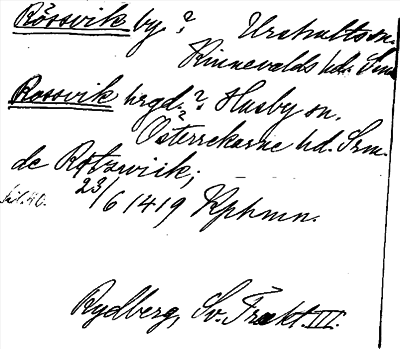 Rössvik by.? Urshults sn.
Kinnevalds hd. Sm
Rossvik hrgd.? Husby sn.
Österrekarne hd. Srm.
de Rotzwiik;
23/6 1419 Kphmn.
Rydberg, Sv. Trakt. III.